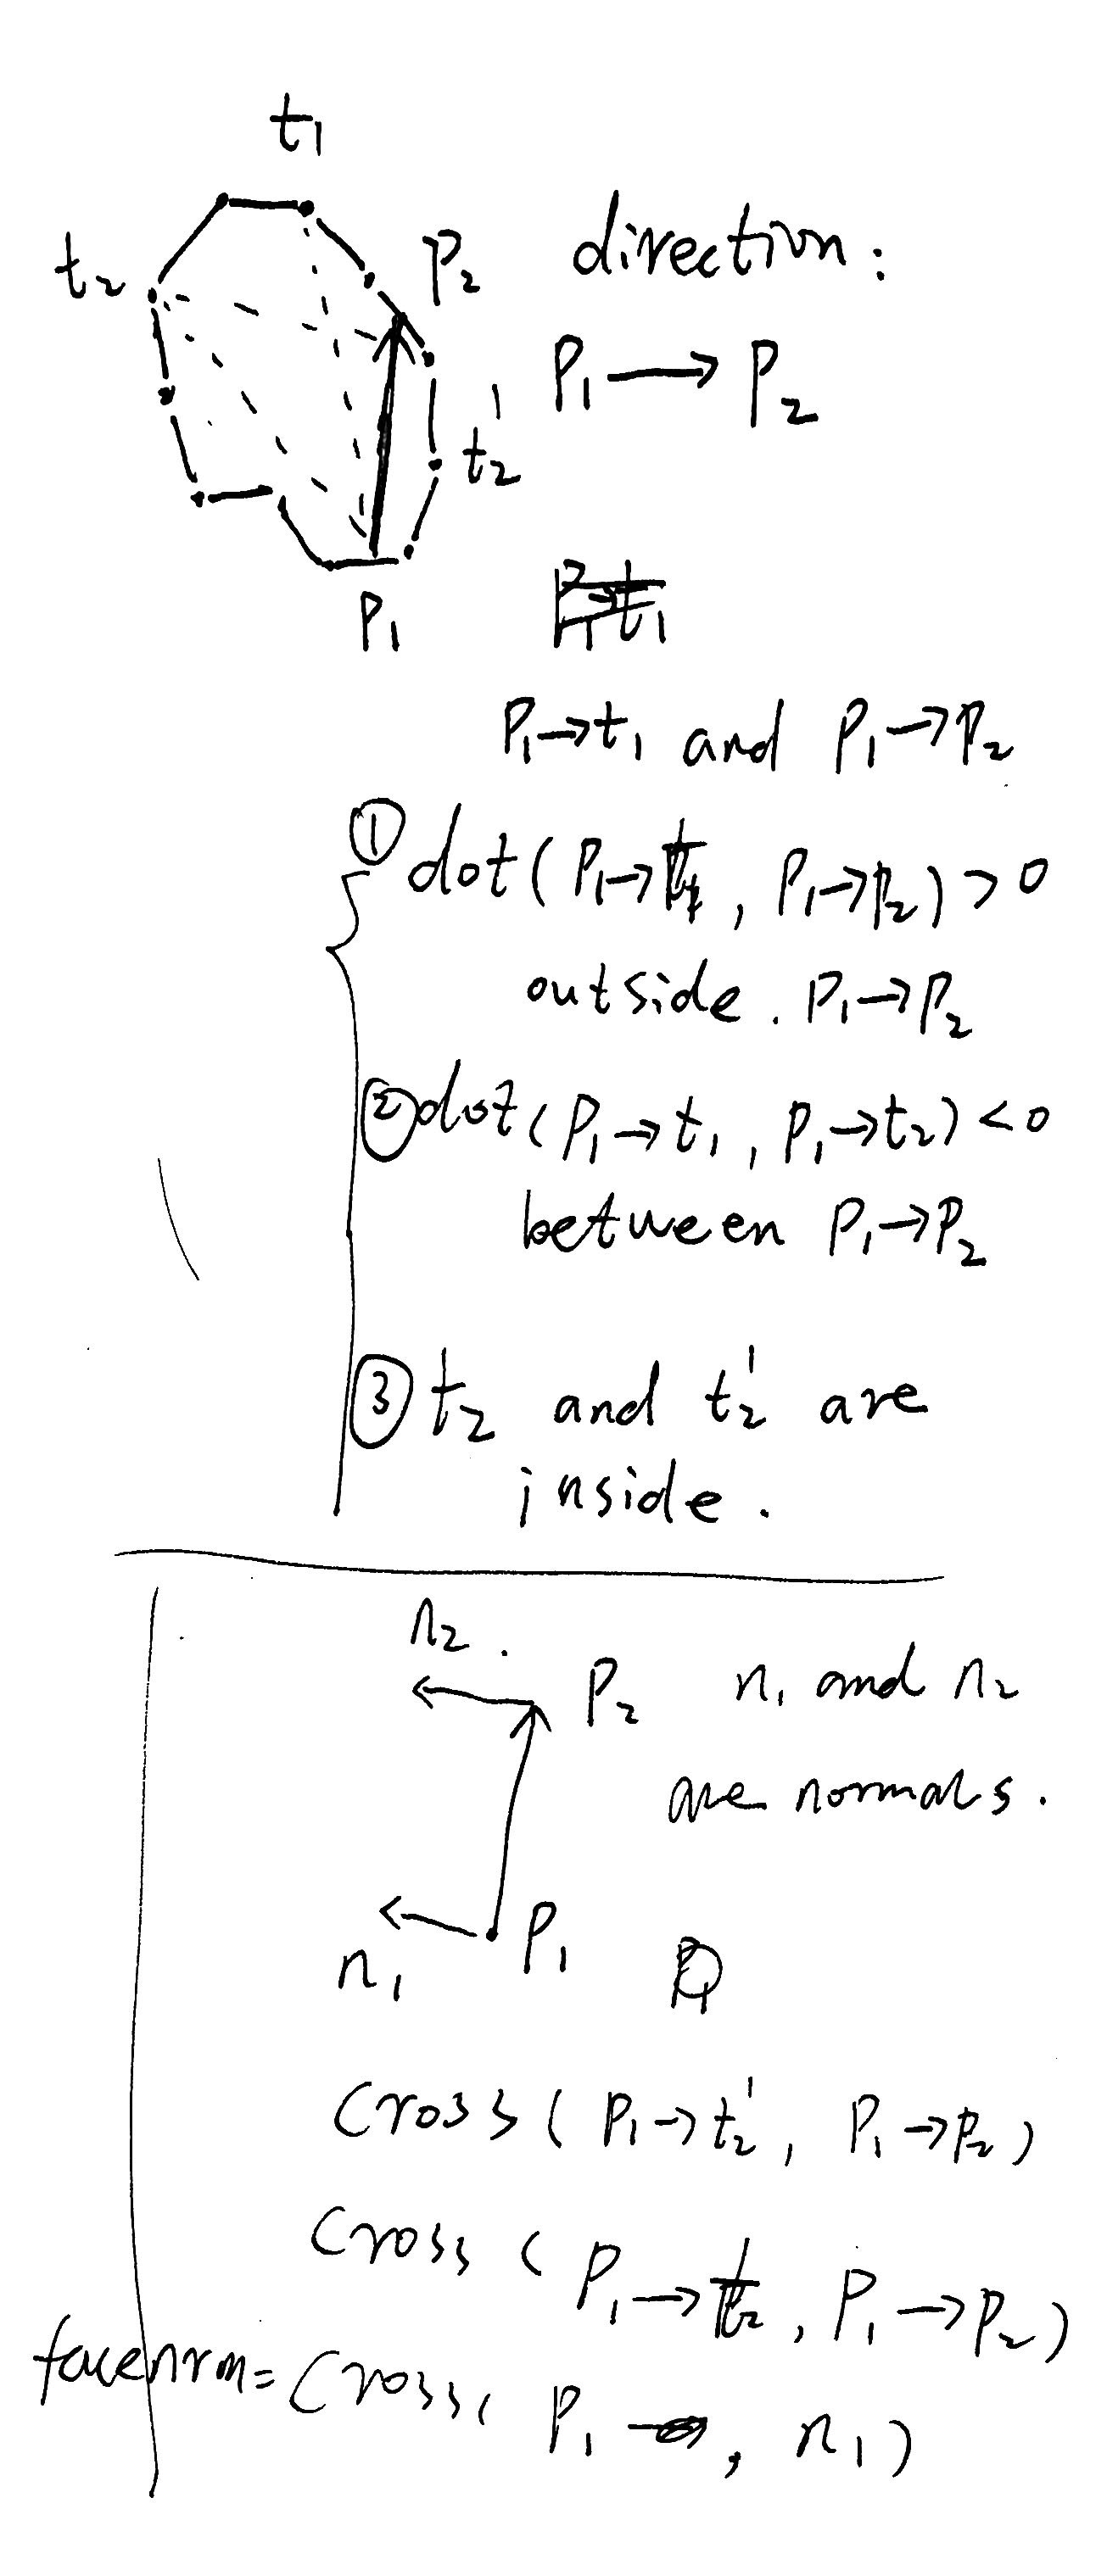 t₁
t₂
P₂
direction:
P₁ → P₂
t₂'
P₁
P₁→t₁
P₁→t₁ and P₁→P₂
① dot(P₁→t₁, P₁→P₂) > 0
outside. P₁→P₂
② dot(P₁→t₁, P₁→t₂) < 0
between P₁→P₂
③ t₂ and t₂' are
inside.
n₂
P₂
n₁ and n₂
are normals.
n₁
P₁
cross(P₁→t₂', P₁→P₂)
cross(P₁→t₂, P₁→P₂)
facenrm = cross(P₁→, n₁)